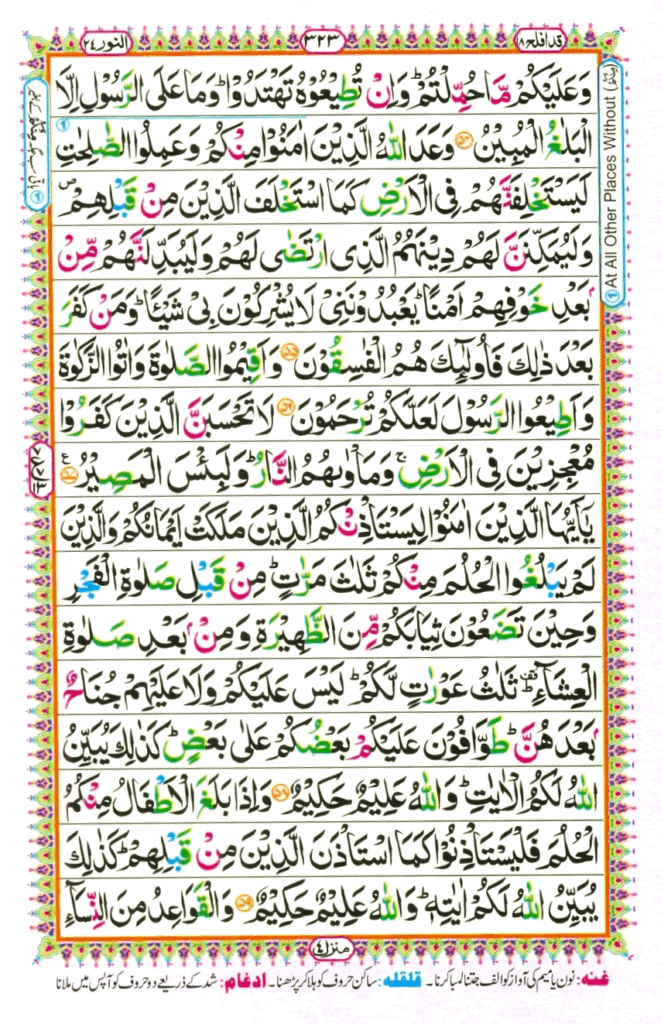 قد افلح ١٨
٣٢٣
النور ٢٤
وَعَلَيْكُمْ مَّا حُمِّلْتُمْ ؕ وَاِنْ تُطِيْعُوْهُ تَهْتَدُوْا ؕ وَمَا عَلَى الرَّسُوْلِ اِلَّا
الْبَلٰغُ الْمُبِيْنُ ﴿۵۴﴾ وَعَدَ اللّٰهُ الَّذِيْنَ اٰمَنُوْا مِنْكُمْ وَعَمِلُوا الصّٰلِحٰتِ
لَيَسْتَخْلِفَنَّهُمْ فِى الْاَرْضِ كَمَا اسْتَخْلَفَ الَّذِيْنَ مِنْ قَبْلِهِمْ ۪
وَلَيُمَكِّنَنَّ لَهُمْ دِيْنَهُمُ الَّذِى ارْتَضٰى لَهُمْ وَلَيُبَدِّلَنَّهُمْ مِّنْۢ
بَعْدِ خَوْفِهِمْ اَمْنًا ؕ يَعْبُدُوْنَنِىْ لَا يُشْرِكُوْنَ بِىْ شَيْـًٔا ؕ وَمَنْ كَفَرَ
بَعْدَ ذٰلِكَ فَاُولٰٓئِكَ هُمُ الْفٰسِقُوْنَ ﴿۵۵﴾ وَاَقِيْمُوا الصَّلٰوةَ وَاٰتُوا الزَّكٰوةَ
وَاَطِيْعُوا الرَّسُوْلَ لَعَلَّكُمْ تُرْحَمُوْنَ ﴿۵۶﴾ لَا تَحْسَبَنَّ الَّذِيْنَ كَفَرُوْا
مُعْجِزِيْنَ فِى الْاَرْضِ ۚ وَمَاْوٰىهُمُ النَّارُ ؕ وَلَبِئْسَ الْمَصِيْرُ ﴿۵۷﴾ ع
يٰۤاَيُّهَا الَّذِيْنَ اٰمَنُوْا لِيَسْتَاْذِنْكُمُ الَّذِيْنَ مَلَكَتْ اَيْمَانُكُمْ وَالَّذِيْنَ
لَمْ يَبْلُغُوا الْحُلُمَ مِنْكُمْ ثَلٰثَ مَرّٰتٍ ؕ مِنْ قَبْلِ صَلٰوةِ الْفَجْرِ
وَحِيْنَ تَضَعُوْنَ ثِيَابَكُمْ مِّنَ الظَّهِيْرَةِ وَمِنْۢ بَعْدِ صَلٰوةِ
الْعِشَآءِ ؕ ثَلٰثُ عَوْرٰتٍ لَّكُمْ ؕ لَيْسَ عَلَيْكُمْ وَلَا عَلَيْهِمْ جُنَاحٌۢ
بَعْدَهُنَّ ؕ طَوّٰفُوْنَ عَلَيْكُمْ بَعْضُكُمْ عَلٰى بَعْضٍ ؕ كَذٰلِكَ يُبَيِّنُ
اللّٰهُ لَكُمُ الْاٰيٰتِ ؕ وَاللّٰهُ عَلِيْمٌ حَكِيْمٌ ﴿۵۸﴾ وَاِذَا بَلَغَ الْاَطْفَالُ مِنْكُمُ
الْحُلُمَ فَلْيَسْتَاْذِنُوْا كَمَا اسْتَاْذَنَ الَّذِيْنَ مِنْ قَبْلِهِمْ ؕ كَذٰلِكَ
يُبَيِّنُ اللّٰهُ لَكُمْ اٰيٰتِهٖ ؕ وَاللّٰهُ عَلِيْمٌ حَكِيْمٌ ﴿۵۹﴾ وَالْقَوَاعِدُ مِنَ النِّسَآءِ
① At All Other Places Without
منزل ٤
غنه: نون یا میم کی آواز کو الف جتنا لمبا کرنا ۔ قلقله: ساکن حروف کو ہلا کر پڑھنا ۔ ادغام: شد کے ذریعے دو حروف کو آپس میں ملانا